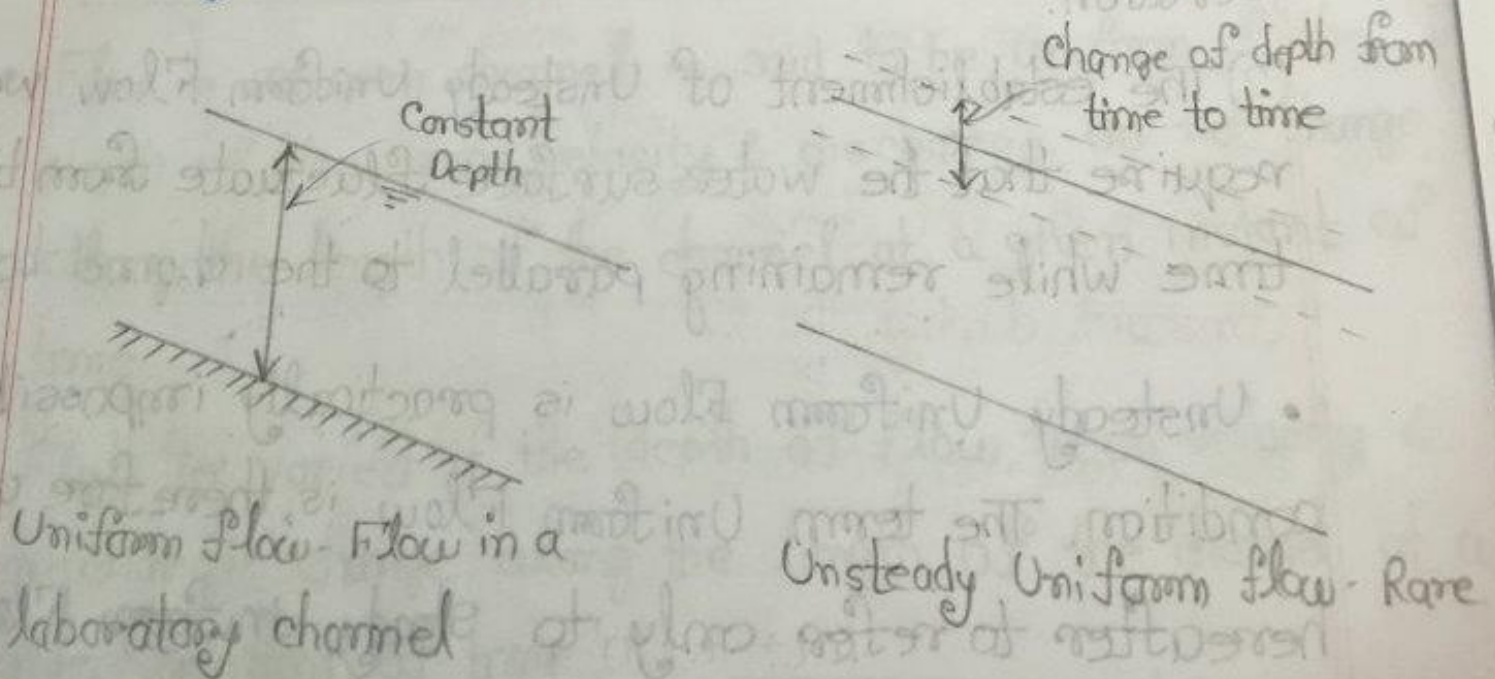 Constant
Depth
Change of depth from
time to time
Uniform flow - Flow in a
laboratory channel
Unsteady Uniform flow - Rare